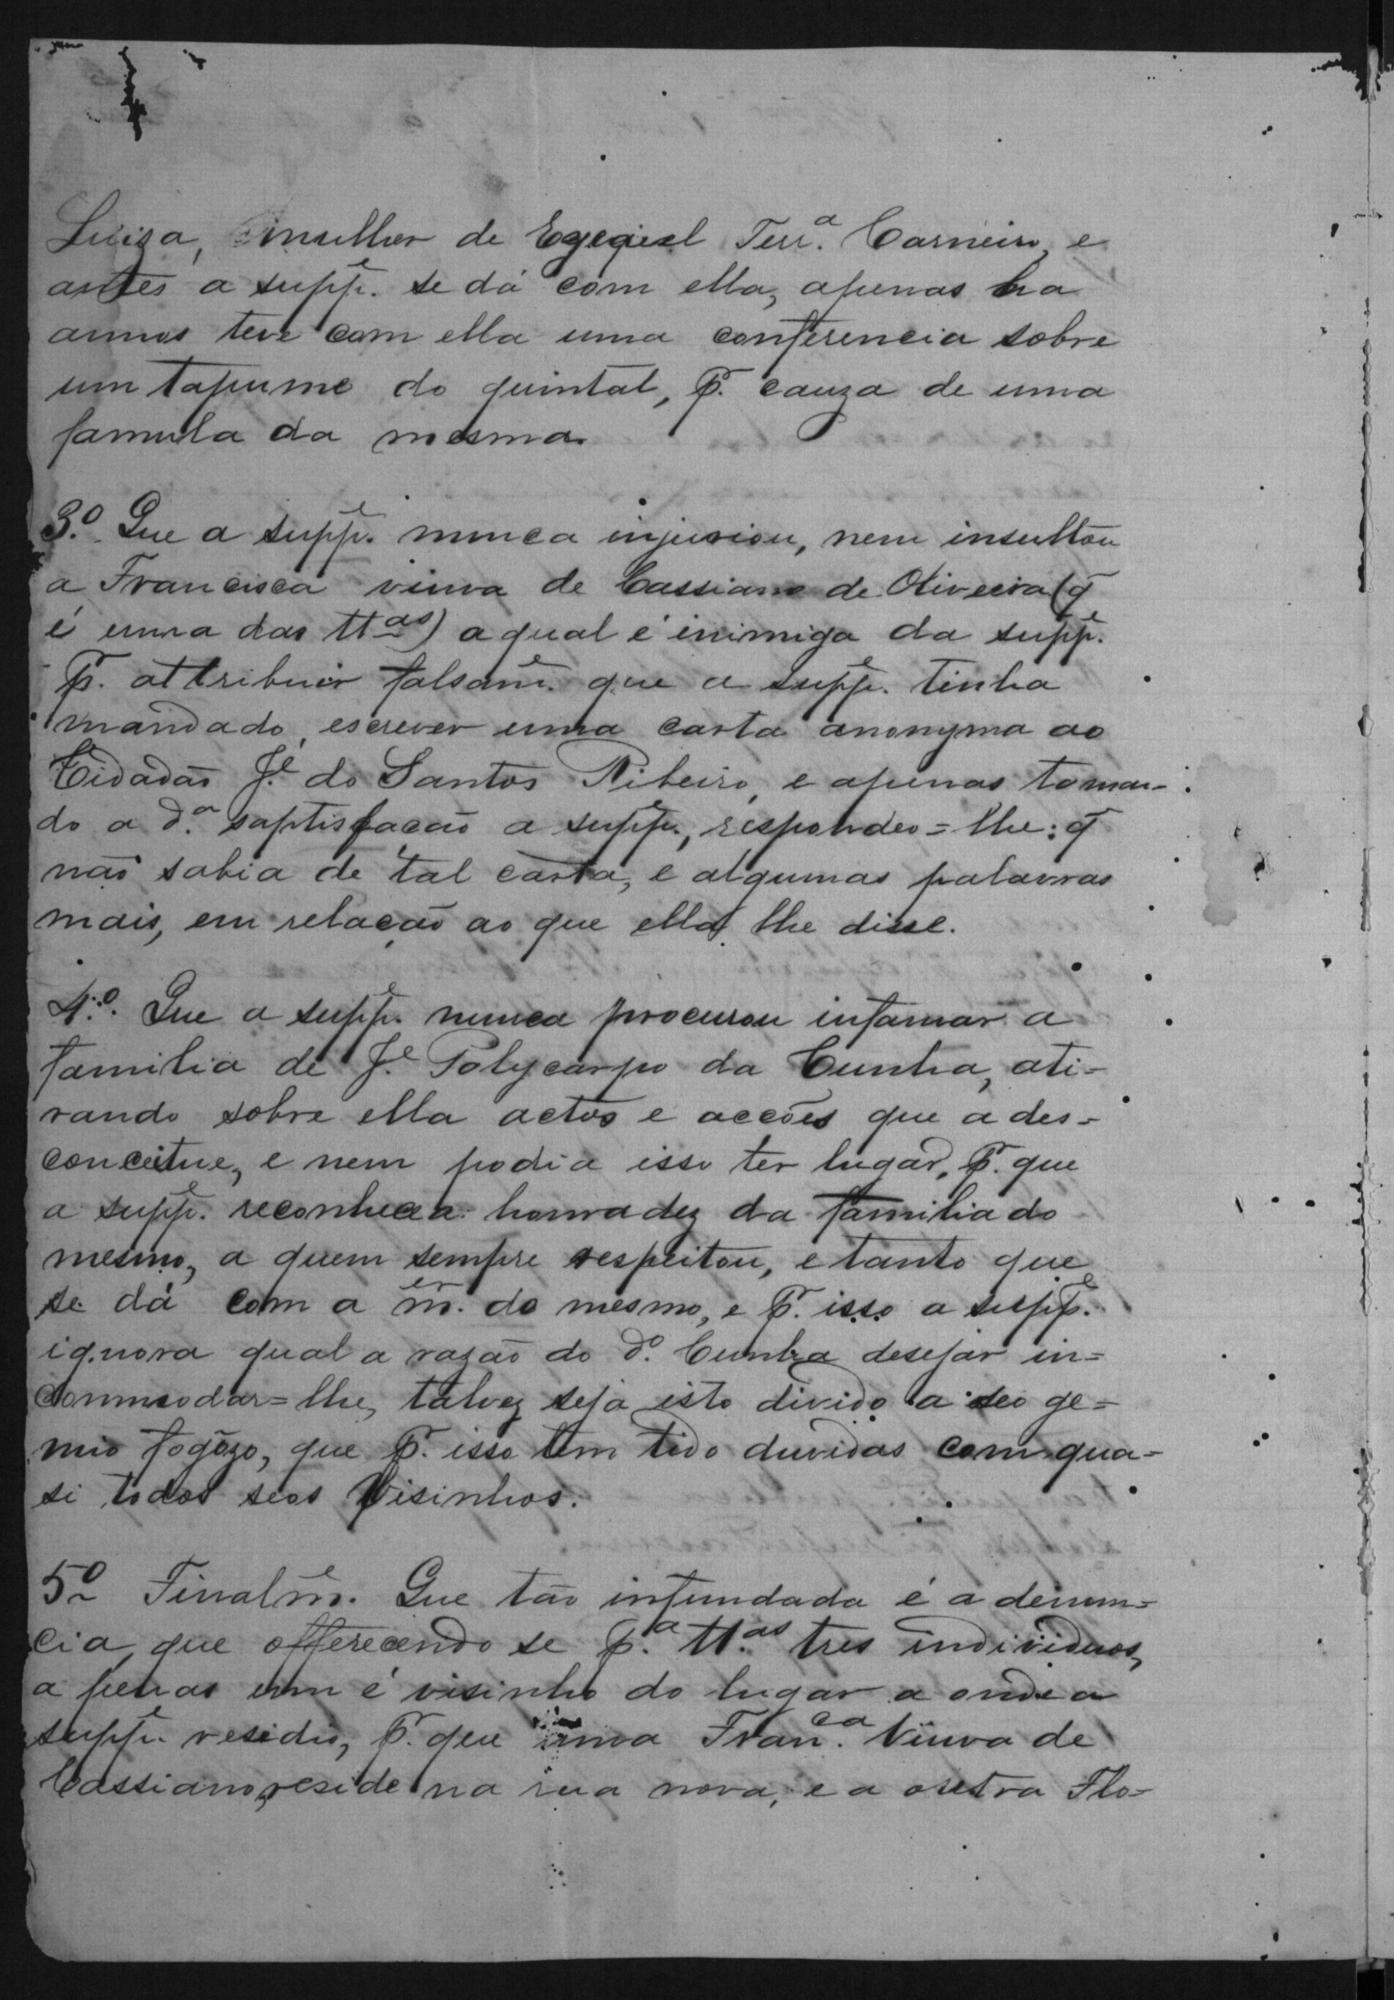 Luiza, mulher de Ezequiel Ferr.ª Carneiro, e
antes a supp.e se dá com ella, apenas ha
annos teve com ella uma conferencia sobre
um tapume do quintal, p.r cauza de uma
famula da mesma.
3.º Que a supp.e nunca injuriou, nem insultou
a Francisca viuva de Cassiano de Oliveira (q̃
é uma das ttas) a qual é inimiga da supp.e
p.r attribuir falsam.e que a supp.e tinha
mandado escrever uma carta anonyma ao
Cidadão J.e do Santos Ribeiro, e apenas toman-
do a d.ª saptisfação a supp.e, respondeo=lhe: q̃
não sabia de tal carta, e algumas palavras
mais, em relação ao que ella lhe disse.
4.º Que a supp.e nunca procurou infamar a
familia de J.e Polycarpo da Cunha, ati-
rando sobre ella actos e accões que a des-
conceitue, e nem podia isso ter lugar, p.r que
a supp.e reconhece a honradez da familia do
mesmo, a quem sempre respeitou, e tanto que
se dá com a m.er do mesmo, e p.r isso a supp.e
ignora qual a razão do d.º Cunha desejar in=
commodar=lhe, talvez seja isto divido a seo ge=
nio fogozo, que p.r isso tem tido duvidas com qua-
si todos seos Visinhos.
5º Finalm.e Que tão infundada é a denun=
cia, que offerecendo se p.ª tt.as tres individuos,
a penas um é visinho do lugar a onde a
supp.e residio, p.r que uma Fran.ca Viuva de
Cassiano, reside na rua nova, e a outra Flo-